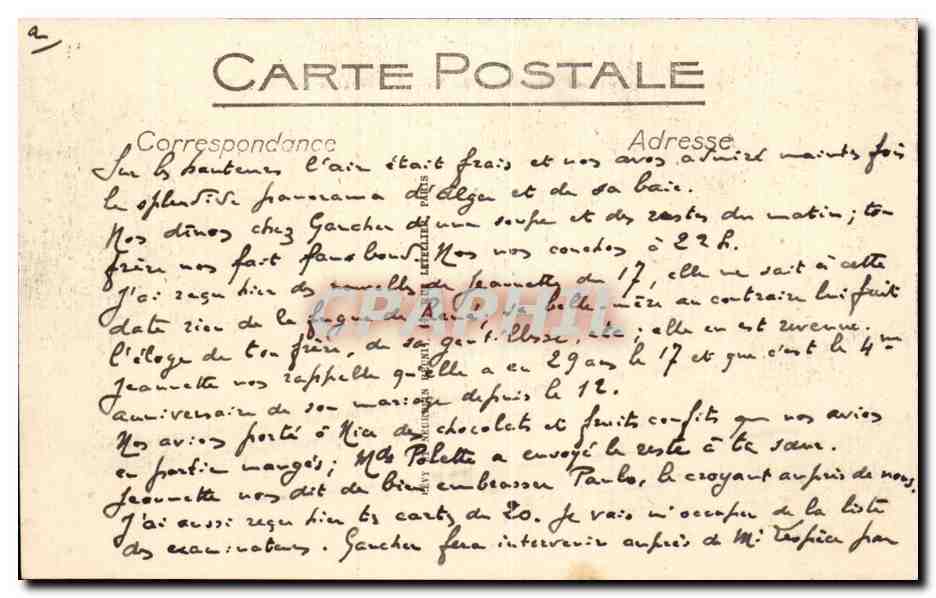 a
CARTE POSTALE
Correspondance
Adresse
Sur les hauteurs l'air était frais et nos avos admiré maintes fois
le splendide panorama d'Alger et de sa baie.
Nos dînos chez Gaucher d'une soupe et des restes du matin ; ton
frère nos fait faux bond. Nos nos couchos à 22 h.
J'ai reçu hier des nouvelles de Jeannette du 17, elle ne sait à cette
date rien de la fugue de René, sa belle mère au contraire lui fait
l'éloge de ton frère, de sa gentillesse, etc ; elle en est revenue.
Jeannette nos rappelle qu'elle a eu 29 ans le 17 et que c'est le 4me
anniversaire de son mariage depuis le 12.
Nos avios porté à Nice des chocolats et fruits confits que nos avios
en partie mangés ; Mde Polette a envoyé le reste à ta sœur.
Jeannette nos dit de bien embrasser Paulo, le croyant auprès de nous.
J'ai aussi reçu hier tes cartes du 20. Je vais m'occuper de la liste
des examinateurs. Gaucher fera intervenir auprès de Mr par
LÉVY ET NEURDEIN RÉUNIS, LETELLIER, PARIS
CPAPHIL